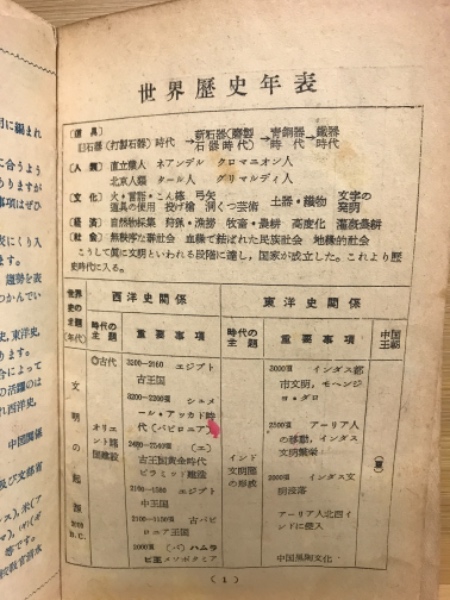 世界歴史年表
〔道具〕
旧石器(打製石器)時代→新石器(磨製石器時代)→青銅器時代→鉄器時代
〔人類〕直立猿人 ネアンデル クロマニオン人
北京人類 タール人 グリマルディ人
〔文化〕火・言語・こん棒 弓矢 土器・織物 文字の
道具の使用 投げ槍 洞くつ芸術 発明
〔経済〕自然物採集 狩猟・漁撈 牧畜・農耕 高度化 灌漑農耕
〔社会〕無秩序な群社会 血縁で結ばれた民族社会 地縁的社会
こうして真に文明といわれる段階に達し,国家が成立した。これより歴
史時代に入る。
世界史の主題(年代)
西洋史関係
東洋史関係
時代の主題
重要事項
時代の主題
重要事項
中国王朝
文明の起源
◎古代
オリエント諸国建設
3200-2160 エジプト
古王国
3200-2200頃 シュメ
ール・アッカド時
代(バビロニア)
(エ)
古王国黄金時代
ピラミッド建設
エジプト
中王国
古バビ
ロニア王国
(バ)ハムラ
メソポタミア
インド文明圏の形成
3000頃 インダス都
市文明,モヘンジ
ョ・ダロ
2500頃 アーリア人
の移動,インダス
文明繁栄
2000頃 インダス文
明没落
アーリア人北西イ
ンドに侵入
中国黒陶文化
(夏)
B.C.
(1)
に編まれ
に合うよう
ありますが
事項はぜひ
にくり入
ます。
趨勢を表
つかんでい
史,東洋史,
ります。
合によって
の活躍のは
西洋史,
中国関係
及び文部省
ス),米(ア
等です。